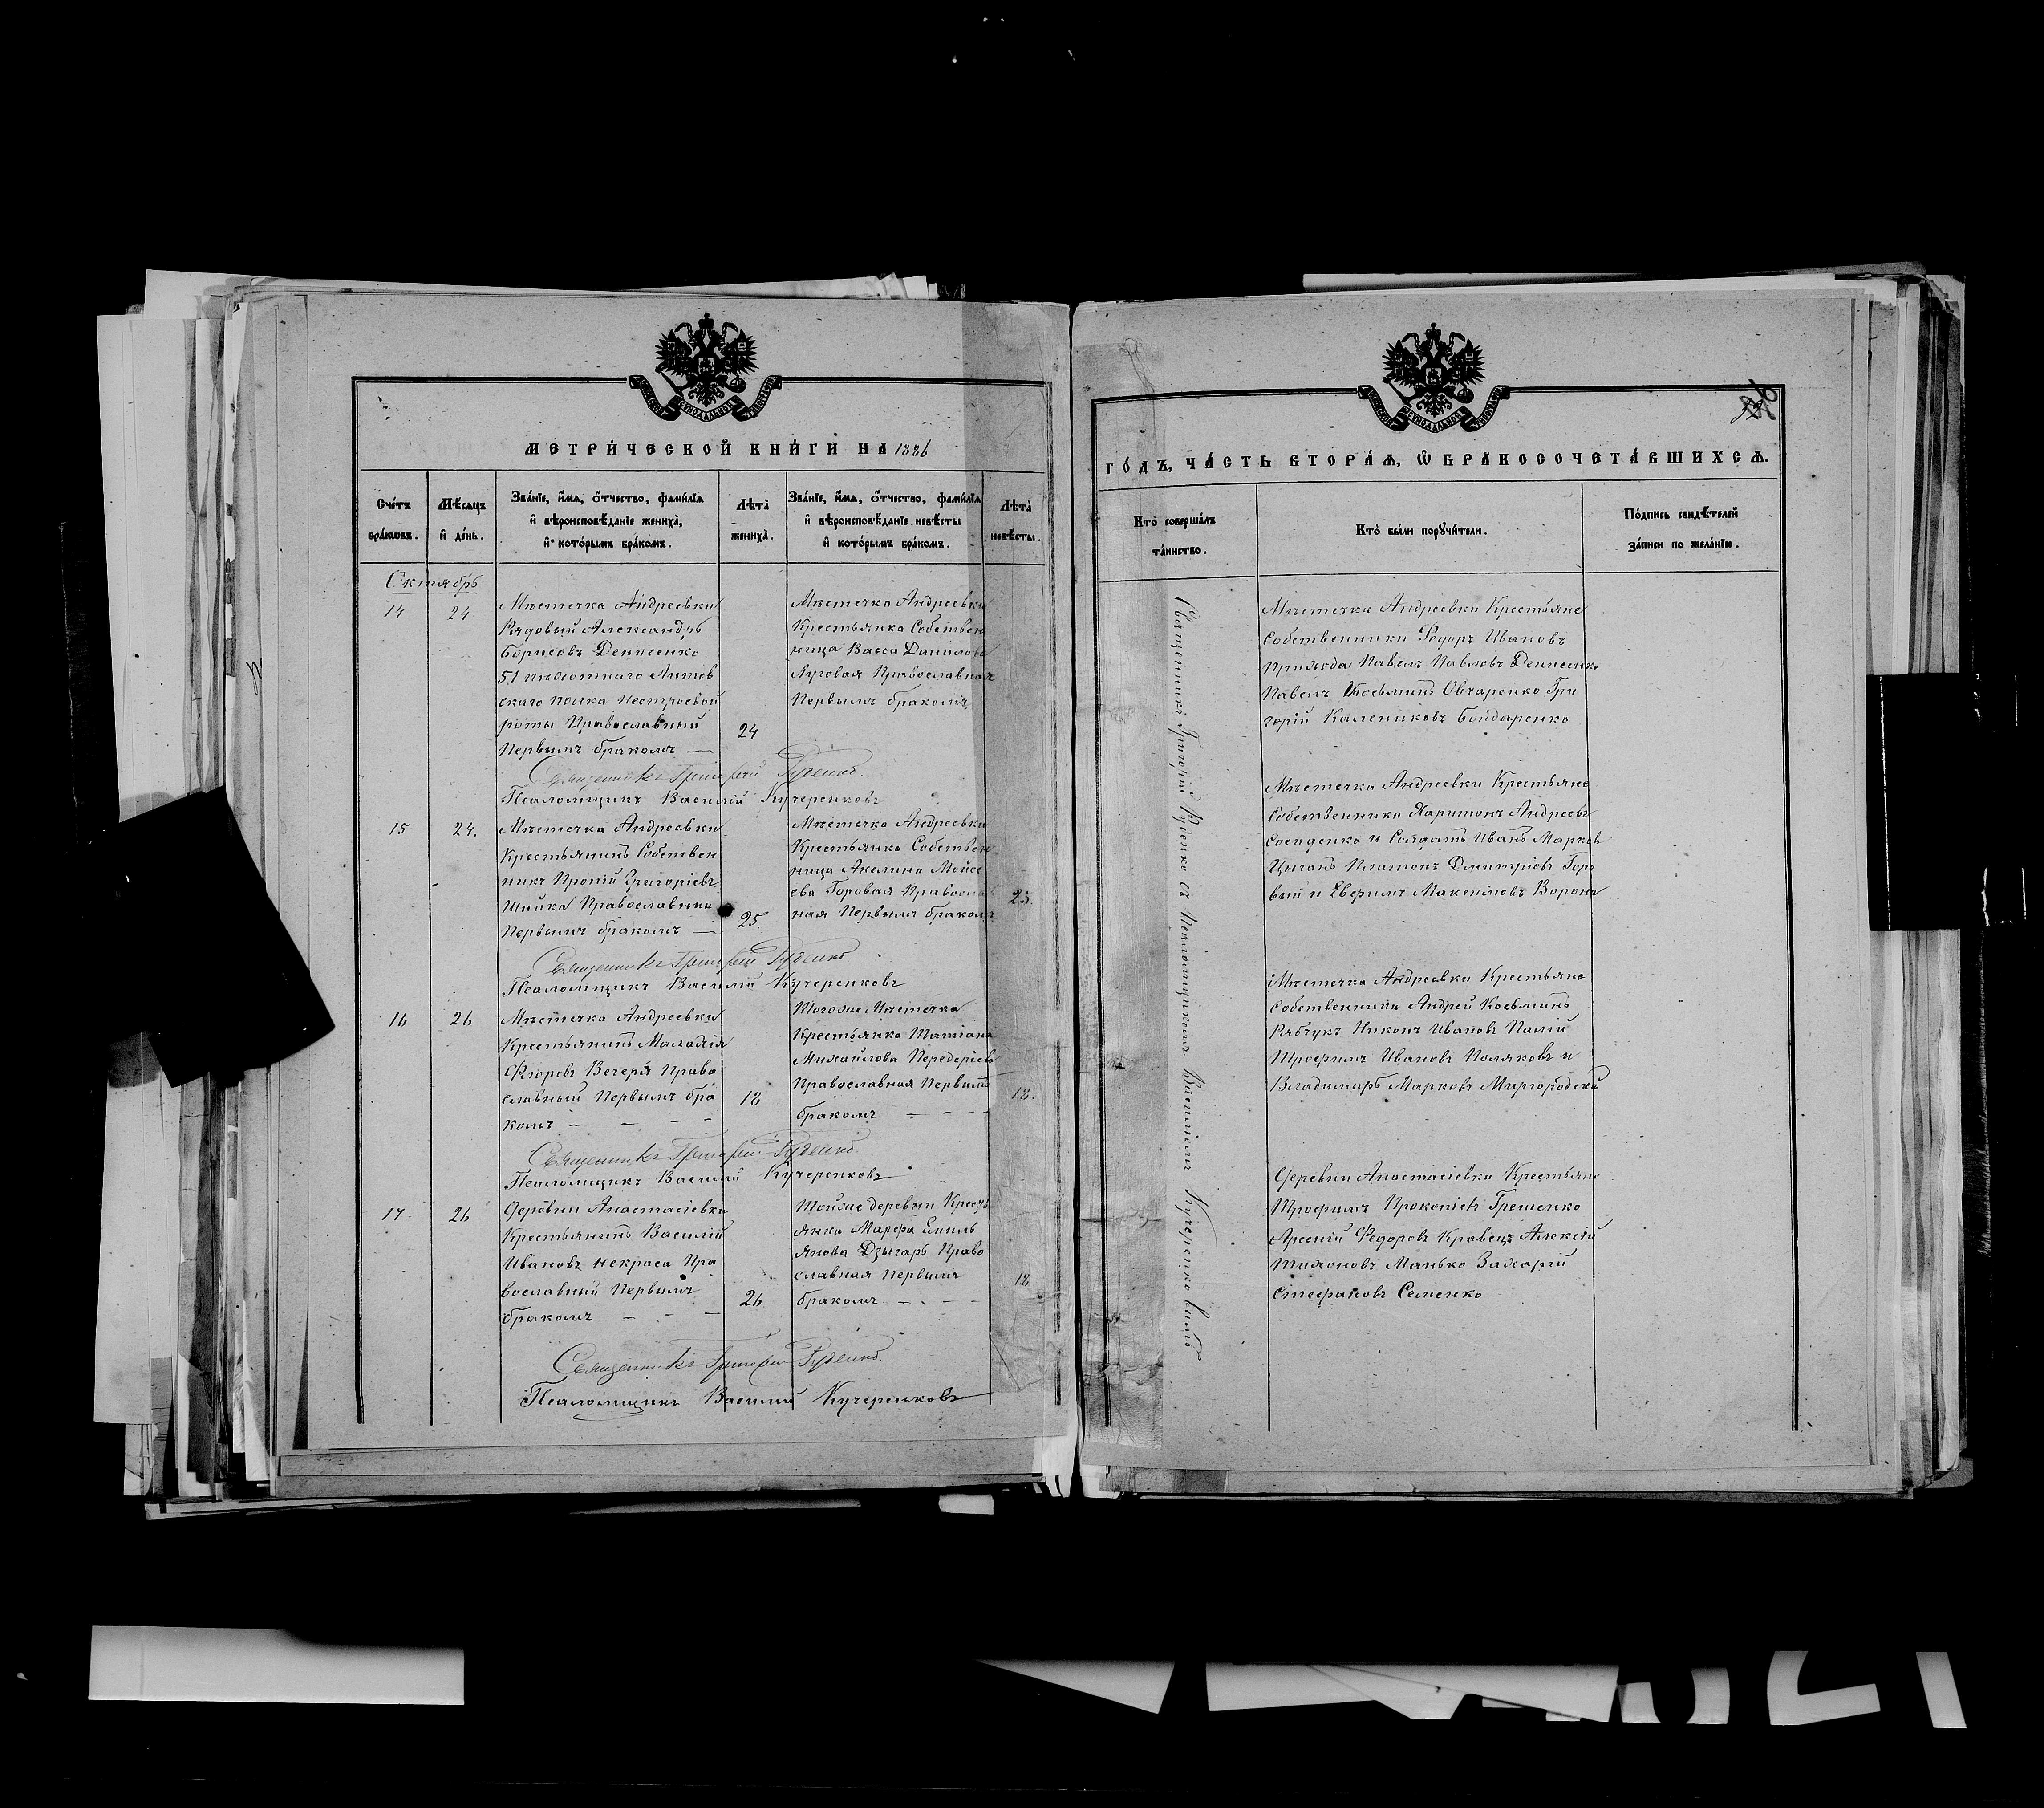 МЕТРИ́ЧЕСКОЙ КНИ́ГИ НА 1886
Сче́тъ бра́кѡвъ.
Мѣ́сяцъ и де́нь.
Зва́нїе, и́мѧ, ѻ́тчество, фами́лїѧ
и вѣроисповѣ́данїе жениха̀,
и кото́рымъ бра́комъ.
Лѣ́та жениха̀.
Зва́нїе, и́мѧ, ѻ́тчество, фами́лїѧ
и вѣроисповѣ́данїе невѣ́сты
и кото́рымъ бра́комъ.
Лѣ́та невѣ́сты.
Октябрь
14
24
Мѣстечка Андреевки
Рядовый Александръ
Борисовъ Денисенко
51 пѣхотнаго Литов
скаго полка нестроевой
роты Православный
Первымъ бракомъ —
24
Мѣстечка Андреевки
Крестьянка Собствен
ница Васса Данилова
Луговая Православная
Первымъ бракомъ
Священникъ Григорій Руденко.
Псаломщикъ Василій Кучеренковъ
15
24.
Мѣстечка Андреевки
Крестьянинъ Собствен
никъ Григоріевъ
Шийка Православный
Первымъ бракомъ —
25.
Мѣстечка Андреевки
Крестьянка Собствен
ница Акелина Мойсе
ева Горовая Правосла
ная Первымъ бракомъ
23.
Священникъ Григорій Руденко
Псаломщикъ Василій Кучеренковъ
16
26
Мѣстечка Андреевки
Крестьянинъ
Вечеря Право
славный Первымъ бра
комъ — — — —
18
Тогоже Мѣстечка
Крестьянка Татіана
Михайлова
Православная Первымъ
бракомъ — — — —
18.
Священникъ Григорій Руденко.
Псаломщикъ Василій Кучеренковъ
17
26
Деревни Анастасіевки
Крестьянинъ Василій
Ивановъ Некраса Пра
вославный Первымъ
бракомъ — — —
26
Тойже деревни Кресть
янка Марфа Емиль
янова Дзыгарь Право
славная Первымъ
бракомъ — — — —
18
Священникъ Григорій Руденко.
Псаломщикъ Василій Кучеренковъ
ГО́ДЪ, ЧА́СТЬ ВТОРА́Ѧ, Ѡ БРАКОСОЧЕТА́ВШИХСѦ.
Кто̀ соверша́лъ
та́инство.
Кто̀ бы́ли порꙋчи́тели.
По́дпись свидѣ́телей
за́писи по жела́нїю.
Священникъ Григорій Руденко съ Псаломщикомъ Василіемъ Кучеренко
Мѣстечка Андреевки Крестьяне
Собственники Федоръ Ивановъ
Приходa Павелъ Павловъ Денисенко
Павелъ Косьминъ Овчаренко Гри
горій Калениковъ Бондаренко
Мѣстечка Андреевки Крестьяне
Собственники Харитонъ Андреевъ
и Солдатъ Иванъ Марковъ
Цыганъ Платонъ Дмитріевъ Горо
вый и Евфимъ Максимовъ Ворона
Мѣстечка Андреевки Крестьяне
Собственники Андрей Косьминъ
Рябчукъ Никонъ Ивановъ Палій
Трофимъ Ивановъ Поляковъ и
Владимиръ Марковъ Миргородскій
Деревни Анастасіевки Крестьяне
Трофимъ Прокопіевъ Грешенко
Арсеній Федоровъ Кравецъ Алексѣй
Тихоновъ Манько Захарій
Стефановъ Семенко